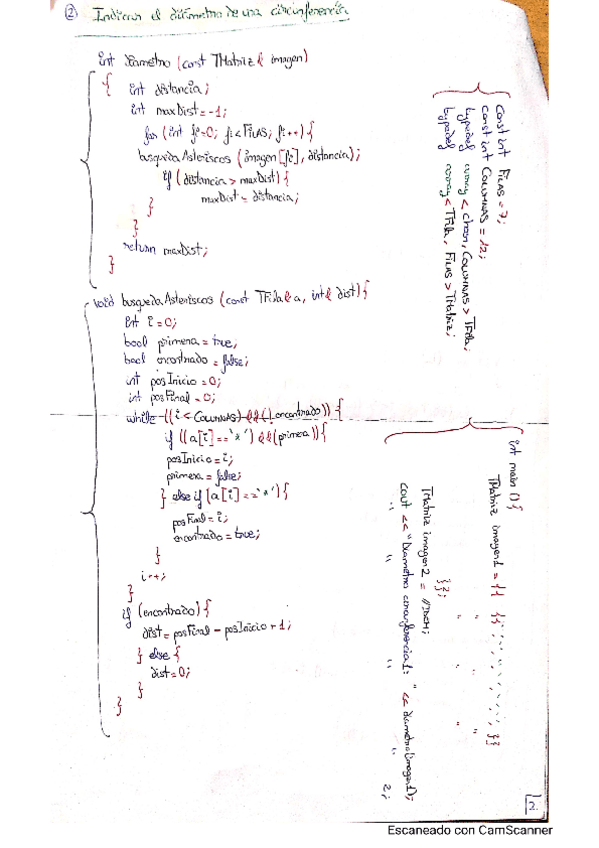 ② Indicar el diámetro de una circunferencia
int diametro (const TMatriz& imagen)
{ int distancia;
int maxDist = -1;
for (int f=0; f<FILAS; f++) {
busquedaAsteriscos (imagen[f], distancia);
if (distancia > maxDist) {
maxDist = distancia;
}
}
return maxDist;
}
void busquedaAsteriscos (const TFila& a, int& dist) {
int i=0;
bool primera = true;
bool encontrado = false;
int posInicio = 0;
int posFinal = 0;
while ((i < COLUMNAS) && (!encontrado)) {
if ((a[i]=='*') && (primera)) {
posInicio = i;
primera = false;
} else if (a[i]=='*') {
posFinal = i;
encontrado = true;
}
i++;
}
if (encontrado) {
dist = posFinal - posInicio + 1;
} else {
dist = 0;
}
}
const int FILAS = 7;
const int COLUMNAS = 12;
typedef array < char, COLUMNAS > TFila;
typedef array < TFila, FILAS > TMatriz;
int main () {
TMatriz imagen1 = {{
}};
TMatriz imagen2 = //IDEM;
cout << "Diametro circunferencia1: " << diametro(imagen1);
" " " " 2;
2.
Escaneado con CamScanner